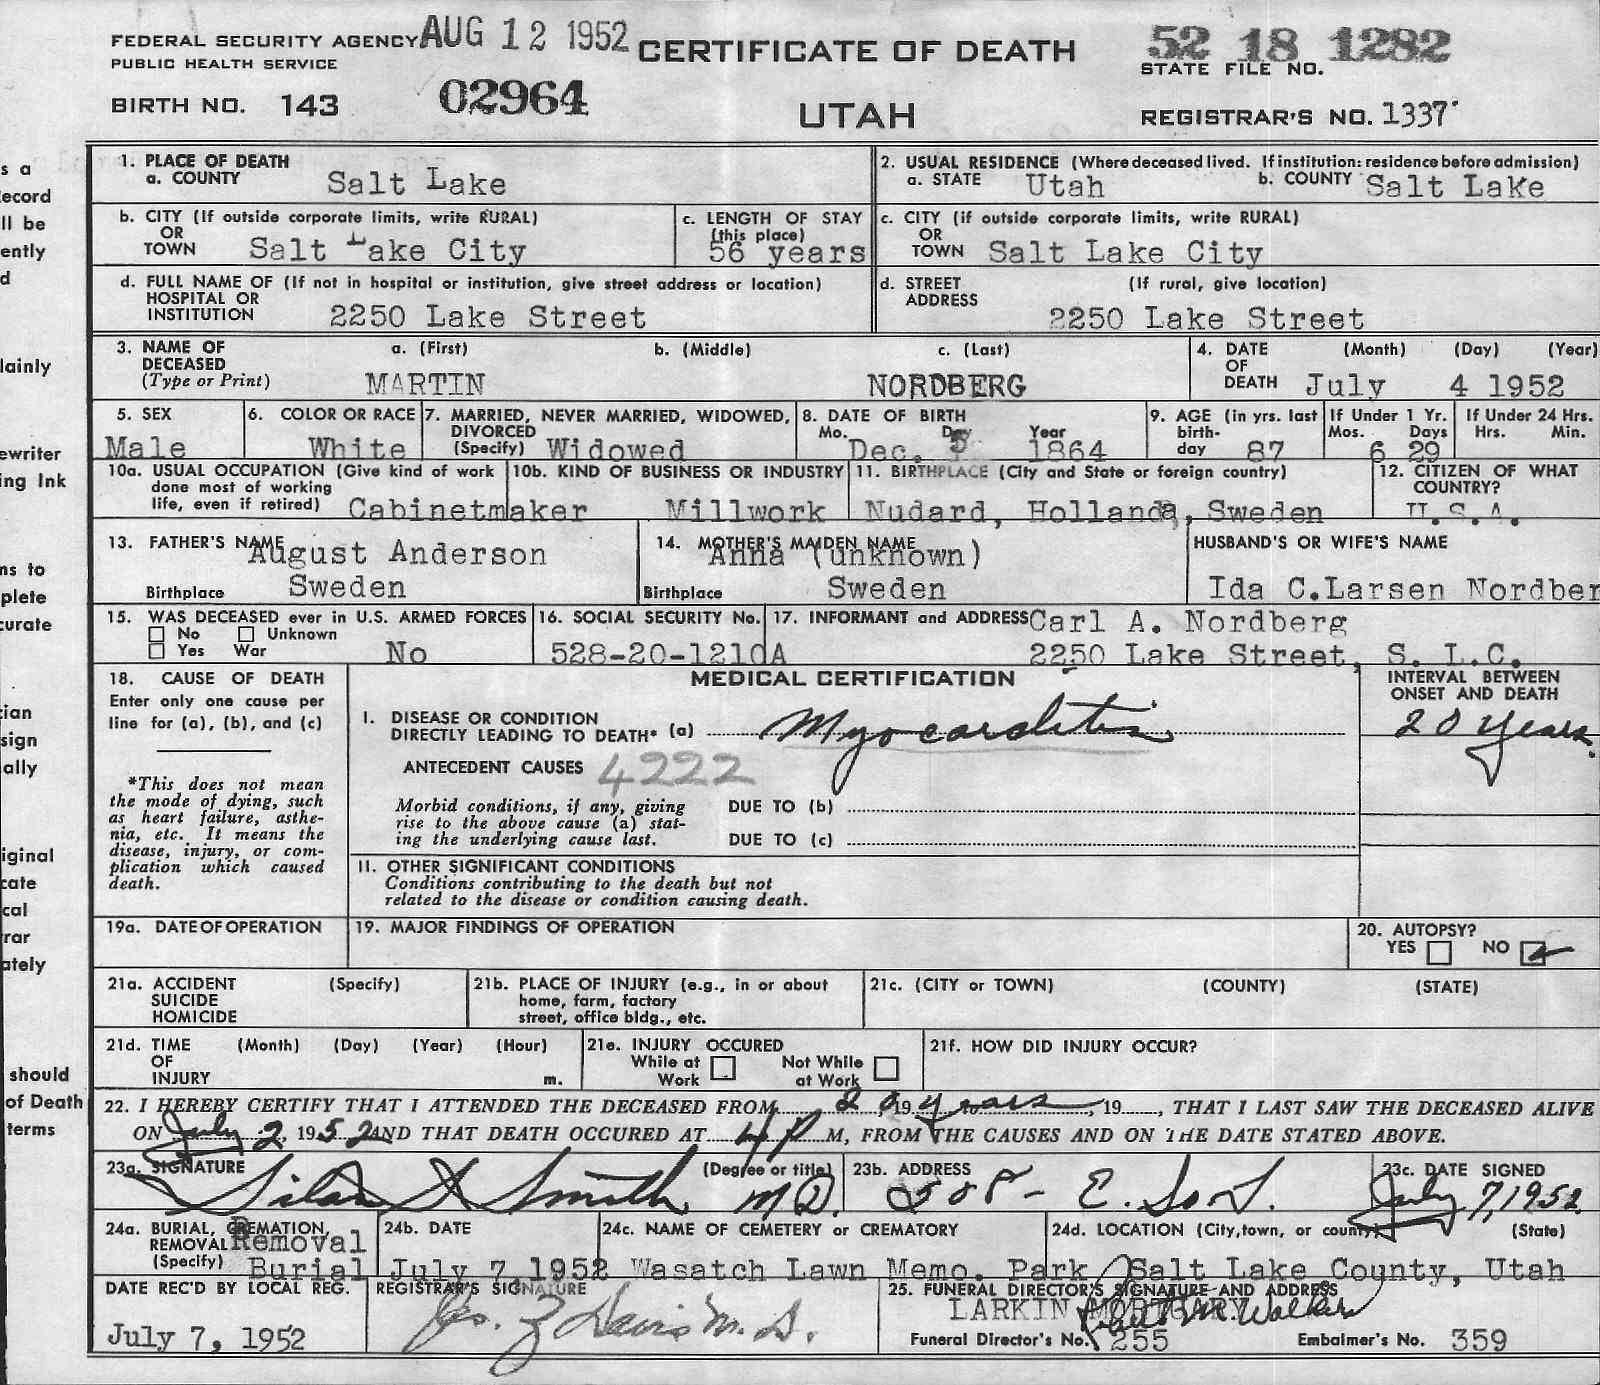 AUG 12 1952
FEDERAL SECURITY AGENCY
PUBLIC HEALTH SERVICE
CERTIFICATE OF DEATH
52 18 1282
STATE FILE NO.
BIRTH NO. 143
02964
UTAH
REGISTRAR'S NO. 1337
s a
ecord
ll be
ently
d
lainly
ewriter
ing Ink
ns to
plete
curate
ian
sign
ally
iginal
cate
cal
rar
ately
should
of Death
terms
1. PLACE OF DEATH
a. COUNTY Salt Lake
2. USUAL RESIDENCE (Where deceased lived. If institution: residence before admission)
a. STATE Utah b. COUNTY Salt Lake
b. CITY (If outside corporate limits, write RURAL)
OR
TOWN Salt Lake City
c. LENGTH OF STAY
(this place)
56 years
c. CITY (if outside corporate limits, write RURAL)
OR
TOWN Salt Lake City
d. FULL NAME OF (If not in hospital or institution, give street address or location)
HOSPITAL OR
INSTITUTION 2250 Lake Street
d. STREET (If rural, give location)
ADDRESS
2250 Lake Street
3. NAME OF a. (First) b. (Middle) c. (Last)
DECEASED
(Type or Print) MARTIN NORDBERG
4. DATE (Month) (Day) (Year)
OF
DEATH July 4 1952
5. SEX
Male
6. COLOR OR RACE
White
7. MARRIED, NEVER MARRIED, WIDOWED,
DIVORCED
(Specify) Widowed
8. DATE OF BIRTH
Mo. Day Year
Dec. 5 1864
9. AGE (in yrs. last
birth-
day 87
If Under 1 Yr.
Mos. Days
6 29
If Under 24 Hrs.
Hrs. Min.
10a. USUAL OCCUPATION (Give kind of work
done most of working
life, even if retired) Cabinetmaker
10b. KIND OF BUSINESS OR INDUSTRY
Millwork
11. BIRTHPLACE (City and State or foreign country)
Nudard, Hollanda, Sweden
12. CITIZEN OF WHAT
COUNTRY?
U.S.A.
13. FATHER'S NAME
August Anderson
Birthplace Sweden
14. MOTHER'S MAIDEN NAME
Anna (unknown)
Birthplace Sweden
HUSBAND'S OR WIFE'S NAME
Ida C.Larsen Nordber
15. WAS DECEASED ever in U.S. ARMED FORCES
No Unknown
Yes War No
16. SOCIAL SECURITY No.
528-20-1210A
17. INFORMANT and ADDRESS Carl A. Nordberg
2250 Lake Street, S. L.C.
18. CAUSE OF DEATH
Enter only one cause per
line for (a), (b), and (c)
*This does not mean
the mode of dying, such
as heart failure, asthe-
nia, etc. It means the
disease, injury, or com-
plication which caused
death.
MEDICAL CERTIFICATION
I. DISEASE OR CONDITION
DIRECTLY LEADING TO DEATH* (a) Myocarditis
ANTECEDENT CAUSES 4222
Morbid conditions, if any, giving
rise to the above cause (a) stat-
ing the underlying cause last.
DUE TO (b)
DUE TO (c)
INTERVAL BETWEEN
ONSET AND DEATH
20 years.
II. OTHER SIGNIFICANT CONDITIONS
Conditions contributing to the death but not
related to the disease or condition causing death.
19a. DATE OF OPERATION
19. MAJOR FINDINGS OF OPERATION
20. AUTOPSY?
YES NO
21a. ACCIDENT (Specify)
SUICIDE
HOMICIDE
21b. PLACE OF INJURY (e.g., in or about
home, farm, factory
street, office bldg., etc.
21c. (CITY or TOWN) (COUNTY) (STATE)
21d. TIME (Month) (Day) (Year) (Hour)
OF
INJURY m.
21e. INJURY OCCURED
While at Not While
Work at Work
21f. HOW DID INJURY OCCUR?
22. I HEREBY CERTIFY THAT I ATTENDED THE DECEASED FROM 20, 19 years, 19, THAT I LAST SAW THE DECEASED ALIVE
ON July 2, 1952 AND THAT DEATH OCCURED AT 4 P M, FROM THE CAUSES AND ON THE DATE STATED ABOVE.
23a. SIGNATURE (Degree or title)
Silas S Smith MD.
23b. ADDRESS
508- E. So T.
23c. DATE SIGNED
July 7, 1952
24a. BURIAL, CREMATION,
REMOVAL Removal
(Specify) Burial
24b. DATE
July 7 1952
24c. NAME OF CEMETERY or CREMATORY
Wasatch Lawn Memo. Park
24d. LOCATION (City, town, or county) (State)
Salt Lake County, Utah
DATE REC'D BY LOCAL REG.
July 7, 1952
REGISTRAR'S SIGNATURE
Geo. Z Davis M. D.
25. FUNERAL DIRECTOR'S SIGNATURE AND ADDRESS
LARKIN MORTUARY M. Walker
Funeral Director's No. 255 Embalmer's No. 359